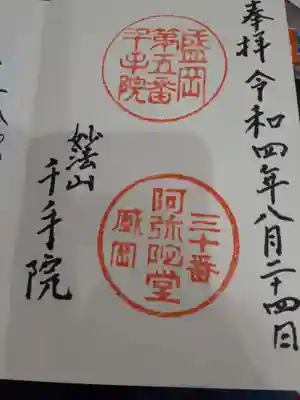 奉拝 令和四年八月二十四日
盛岡
第五番
千手院
三十番
阿弥陀堂
盛岡
妙法山
千手院